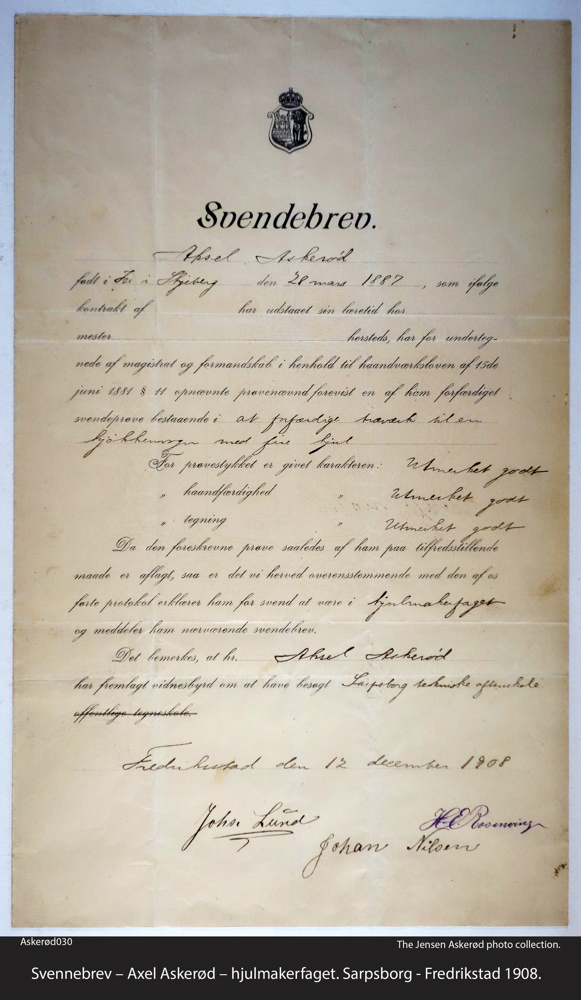 Svendebrev.
Aksel Askerød
født i Is. i Skjeberg den 28 mars 1887, som ifølge
kontrakt af har udstaaet sin læretid hos
mester hersteds, har for underteg-
nede af magistrat og formandskab i henhold til haandværksloven af 15de
juni 1881 § 11 opnævnte prøvenævnd forevist en af ham forfærdiget
svendeprøve bestaaende i at forfærdige træværk til en
kjøkkenvogn med fire hjul
For prøvestykket er givet karakteren: Utmerket godt
„ haandfærdighed „ Utmerket godt
„ tegning „ Utmerket godt
Da den foreskrevne prøve saaledes af ham paa tilfredsstillende
maade er aflagt, saa er det vi herved overensstemmende med den af os
førte protokol erklærer ham for svend at være i hjulmakerfaget
og meddeler ham nærværende svendebrev.
Det bemerkes, at hr. Aksel Askerød
har fremlagt vidnesbyrd om at have besøgt Sarpsborg tekniske aftenskole
offentlige tegneskole.
Fredriksstad den 12 december 1908
Johs. Lund H. E. Rosenvinge
Johan Nilsen
Askerød030
The Jensen Askerød photo collection.
Svennebrev – Axel Askerød – hjulmakerfaget. Sarpsborg - Fredrikstad 1908.